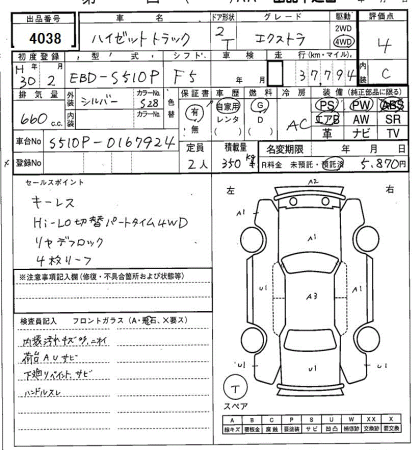 出品番号 車名 ドア形状 グレード 駆動 評価点
4038 ハイゼットトラック 2 T エクストラ 2WD 4WD 4
初度登録 型式 シフト 車検 走行(km・マイル) 内装
H30年2月 EBD-S510P F5 年 月 37,794 C
排気量 外装 シルバー カラーNo. S28 色替 保証書 車歴 燃料 冷房 装備(純正部品に限る)
660c.c. 内装 カラーNo. 有 無 自家用 レンタ G D AC PS PW ABS
エアB AW SR
革 ナビ TV
車台No S510P-0167924 定員 2人 積載量 350kg 名変期限 年 月 日
登録No R料金 未預託・預託済 5,870円
セールスポイント
キーレス
Hi-Lo切替パートタイム4WD
リヤデフロック
4枚リーフ
※注意事項記入欄(修復・不具合箇所および状態等)
検査員記入 フロントガラス(A・飛石、X要ス)
内装汚れキズ
荷台AUサビ
下廻りペイント、サビ
ハンドルスレ
左 右
A2
A1 A1
U1 A3 U1
U1 A1 U1
T
スペア
A B C P S U W X XX
線キズ 要板金 腐蝕 要塗装 サビ 凹凸 補修跡 交換跡 要交換